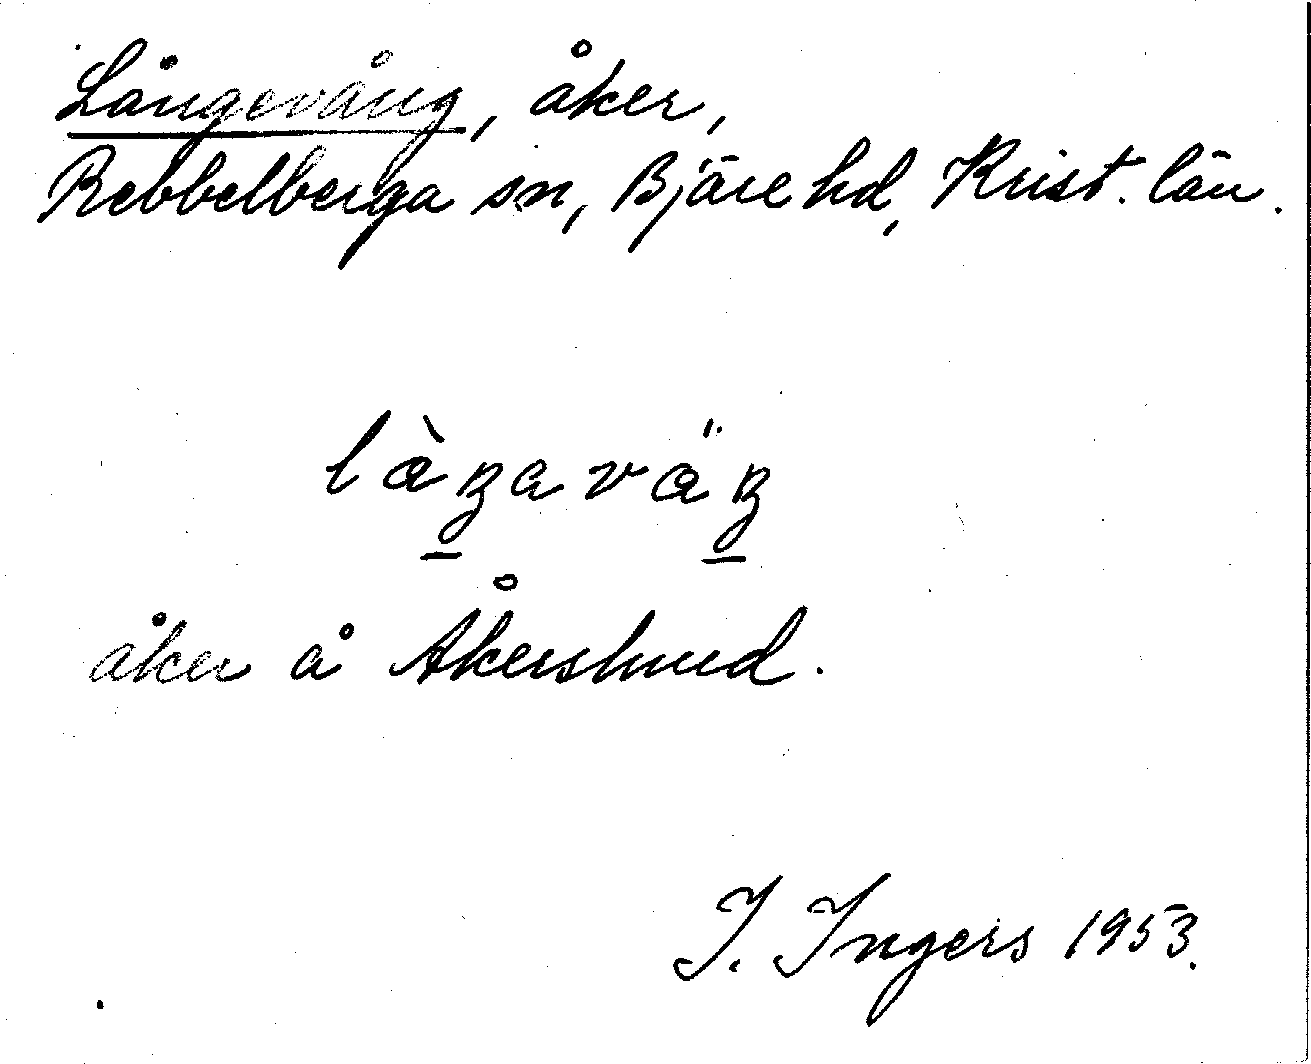 Långevång, åker,
Rebbelberga sn, Bjäre hd, Krist. län.
åker å Åkerslund.
I. Ingers 1953.